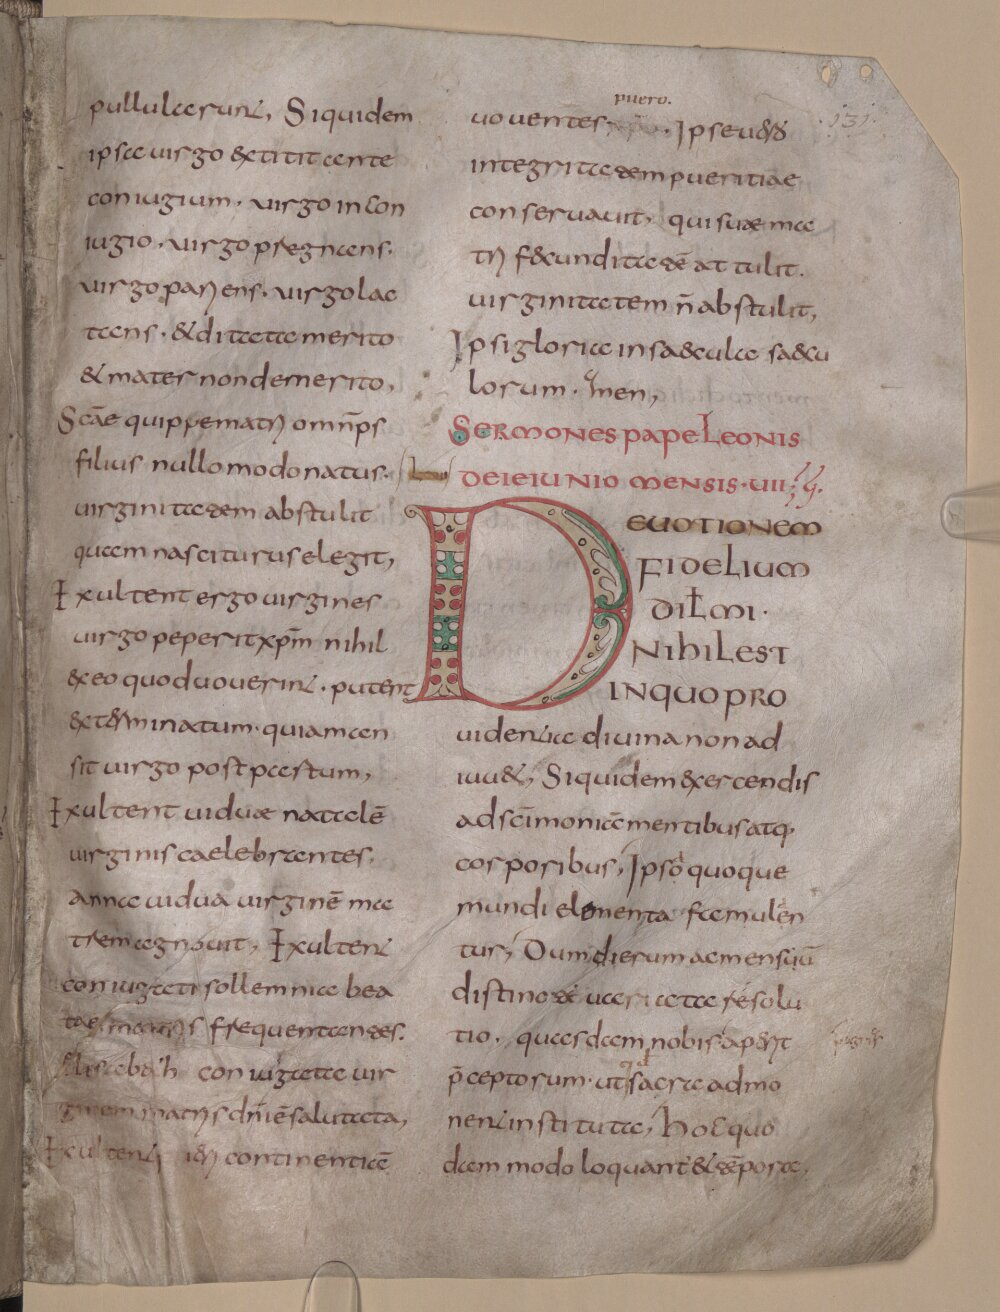 pullulasunt, Siquidem
ipsa uirgo & titit ante
coniugium. uirgo incon
iugio. uirgo pregnans.
uirgo parens. uirgo lac
tans. & ditata merito
& mater non demerito,
Scãe quippe matri omnips
filius nullo modo natus.
uirginitatem abstulit
quam nasciturus elegit,
Exultent ergo uirgines
uirgo peperit xp̄m nihil
& eo quod uouerunt. putent
&terminatum. quiaman
sit uirgo post partum,
Exultent uiduae natalē
uirginis caelebrantes.
anna uidua uirginē ma
trem agnouit, Exultent
coniugati sollemnia bea
tae matris frequentandes.
elisabah coniugata uir
ginem matris dn̄i ē salutata,
Exultent iteri continentiā
puero.
131.
uouentes. Ipse uerus
integritatem pueritiae
conseruauit, qui suae ma
tri fecunditatē attulit.
uirginitatem ñ abstulit,
Ipsi gloria in saecula saecu
lorum. amen,
Sermones pape Leonis
de ieiunio mensis. uii.
Deuotionem
fidelium
dilmi.
Nihil est
in quo pro
uidentia diuina non ad
iuu&, Siquidem exercendis
ad scīmoniā mentibus atq;
corporibus, Ipsa quoque
mundi elementa famulen
tur, Dum dierum ac mensiū
distincte uariata resolu
tio. quasdam nobis aperit
p̄ceptorum. ut sacra admo
nent instituta, Hoc quo
dam modo loquant & tēpora,